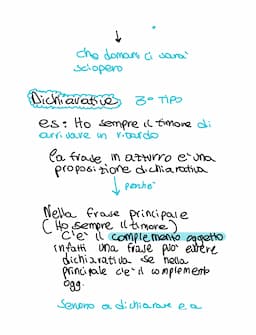 che domani ci sarà
sciopero
Dichiarative 3° TIPO
es: Ho sempre il timore di
arrivare in ritardo
la frase in azzurro è una
proposizione dichiarativa
perché
Nella frase principale
(Ho sempre il timore)
c'è il complemento oggetto
infatti una frase può essere
dichiarativa se nella
principale c'è il complemento
ogg.
Servono a dichiarare e a